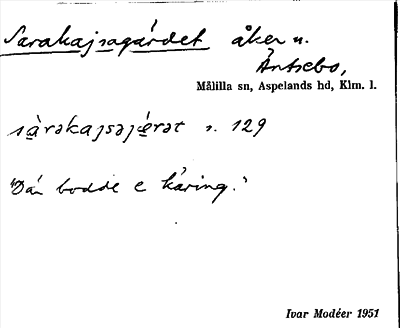 Sarakajsagärdet åker u.
Äntsebo,
Målilla sn, Aspelands hd, Klm. l.
sàrakajsəjǽrət s. 129
"Dä́ bodde e käring."
Ivar Modéer 1951